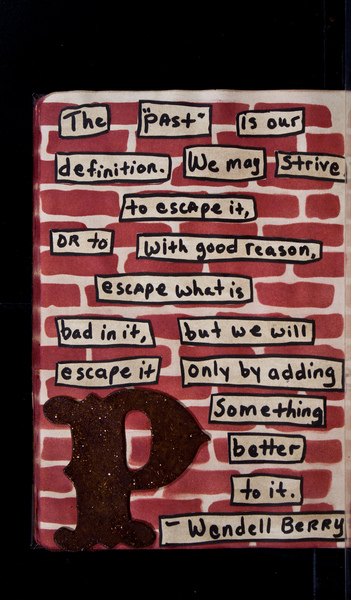 The "PAST" is our
definition. We may strive
to escape it,
OR to with good reason,
escape what is
bad in it, but we will
escape it only by adding
Something
better
to it.
- Wendell BERRY
P